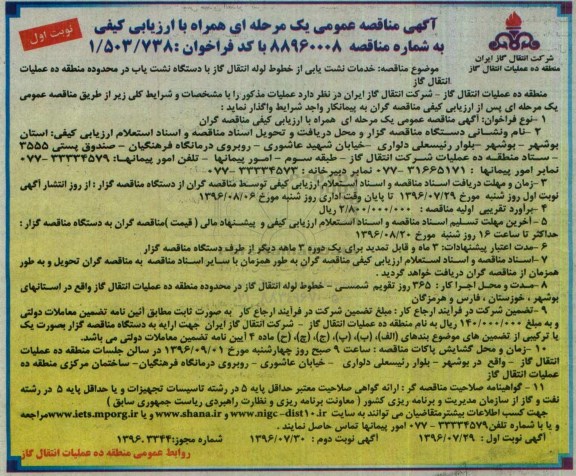 نوبت اول
آگهی مناقصه عمومی یک مرحله ای همراه با ارزیابی کیفی
به شماره مناقصه ۸۸۹۶۰۰۰۸ با کد فراخوان :۱/۵۰۳/۷۳۸
شرکت انتقال گاز ایران
منطقه ده عملیات انتقال گاز
موضوع مناقصه: خدمات نشت یابی از خطوط لوله انتقال گاز با دستگاه نشت یاب در محدوده منطقه ده عملیات
انتقال گاز
منطقه ده عملیات انتقال گاز - شرکت انتقال گاز ایران در نظر دارد عملیات مذکور را با مشخصات و شرایط کلی زیر از طریق مناقصه عمومی
یک مرحله ای پس از ارزیابی کیفی مناقصه گران به پیمانکار واجد شرایط واگذار نماید :
۱ -نوع فراخوان: آگهی مناقصه عمومی یک مرحله ای همراه با ارزیابی کیفی مناقصه گران
۲ -نام ونشانی دستگاه مناقصه گزار و محل دریافت و تحویل اسناد مناقصه و اسناد استعلام ارزیابی کیفی: استان
بوشهر - بوشهر -بلوار رئیسعلی دلواری -خیابان شهید عاشوری - روبروی درمانگاه فرهنگیان - صندوق پستی ۳۵۵۵
- ستاد منطقه ده عملیات شرکت انتقال گاز - طبقه سوم - امور پیمانها - تلفن امور پیمانها: ۳۳۳۳۴۵۷۹-۰۷۷
نمابر امور پیمانها : ۳۱۶۶۵۱۷۱ -۰۷۷ نمابر دبیرخانه : ۳۳۳۳۴۵۷۳-۰۷۷
۳ -زمان و مهلت دریافت اسناد مناقصه و اسناد استعلام ارزیابی کیفی توسط مناقصه گران از دستگاه مناقصه گزار : از روز انتشار آگهی
نوبت اول روز شنبه مورخ ۱۳۹۶/۰۷/۲۹ تا پایان وقت اداری روز شنبه مورخ ۱۳۹۶/۰۸/۰۶
۴ -برآورد تقریبی اولیه مناقصه : ۲/۸۰۰/۰۰۰/۰۰۰ ریال
۵ -آخرین مهلت تسلیم اسناد مناقصه و اسناد استعلام ارزیابی کیفی و پیشنهاد مالی ( قیمت )مناقصه گران به دستگاه مناقصه گزار :
حداکثر تا ساعت ۱۶ روز شنبه مورخ ۱۳۹۶/۰۸/۲۰
۶ -مدت اعتبار پیشنهادات: ۳ ماه و قابل تمدید برای یک دوره ۳ ماهه دیگر از طرف دستگاه مناقصه گزار
۷ -اسناد مناقصه و اسناد استعلام ارزیابی کیفی مناقصه گران به طور همزمان با سایر اسناد مناقصه به مناقصه گران تحویل و به طور
همزمان از مناقصه گران دریافت خواهد گردید .
۸ -مدت و محل اجرا کار : ۳۶۵ روز تقویم شمسی - خطوط لوله انتقال گاز در محدوده منطقه ده عملیات انتقال گاز واقع در استانهای
بوشهر ، خوزستان ، فارس و هرمزگان
۹ -تضمین شرکت در فرآیند ارجاع کار : مبلغ تضمین شرکت در فرآیند ارجاع کار به صورت ثابت مطابق آئین نامه تضمین معاملات دولتی
و به مبلغ ۱۴۰/۰۰۰/۰۰۰ ریال به نام منطقه ده عملیات انتقال گاز - شرکت انتقال گاز ایران جهت ارایه به دستگاه مناقصه گزار بصورت یک
یا ترکیبی از تضمین های موضوع بندهای (الف)، (ب)، (پ)، (ج)، (چ)، (ح) ماده ۴ آیین نامه تضمین معاملات دولتی می باشد.
۱۰ -زمان و محل گشایش پاکات مناقصه : ساعت ۹ صبح روز چهارشنبه مورخ ۱۳۹۶/۰۹/۰۱ در سالن جلسات منطقه ده عملیات
انتقال گاز - واقع در بوشهر - بلوار رئیسعلی دلواری - خیابان عاشوری - روبروی درمانگاه فرهنگیان- ساختمان مرکزی منطقه ده
عملیات انتقال گاز
۱۱ - گواهینامه صلاحیت مناقصه گر : ارائه گواهی صلاحیت معتبر حداقل پایه ۵ در رشته تاسیسات تجهیزات و یا حداقل پایه ۵ در رشته
نفت و گاز از سازمان مدیریت و برنامه ریزی کشور ( معاونت برنامه ریزی و نظارت راهبردی ریاست جمهوری سابق )
جهت کسب اطلاعات بیشترمتقاضیان می توانند به سایت www.nigc-dist10.ir و www.shana.ir و یا www.iets.mporg.ir مراجعه
و یا با شماره تلفن ۳۳۳۳۴۵۷۹ - ۰۷۷ امور پیمانها تماس حاصل نمایند .
آگهی نوبت اول : ۱۳۹۶/۰۷/۲۹ آگهی نوبت دوم : ۱۳۹۶/۰۷/۳۰ شماره مجوز:۱۳۹۶.۳۳۴۴
روابط عمومی منطقه ده عملیات انتقال گاز